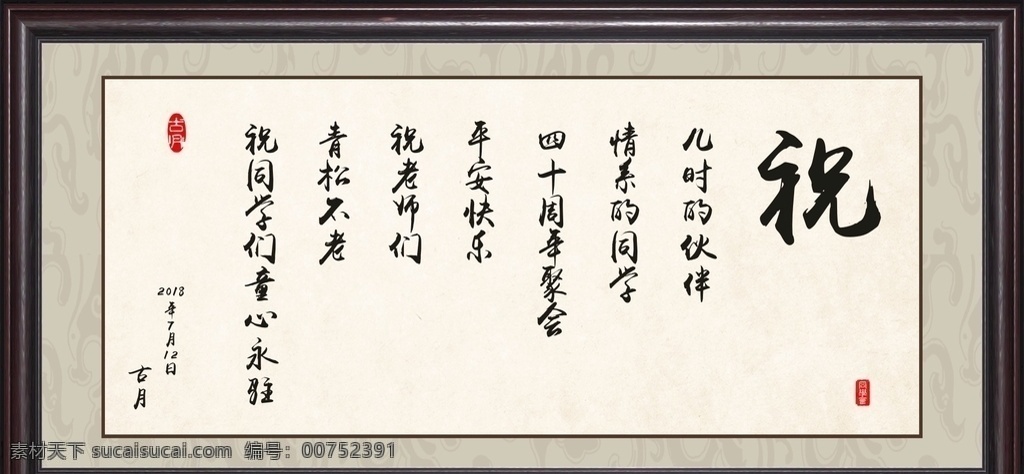 祝
儿时的伙伴
情系的同学
四十周年聚会
平安快乐
祝老师们
青松不老
祝同学们童心永驻
2018年7月12日
古月
古月
同学会
素材天下 sucaisucai.com 编号：00752391